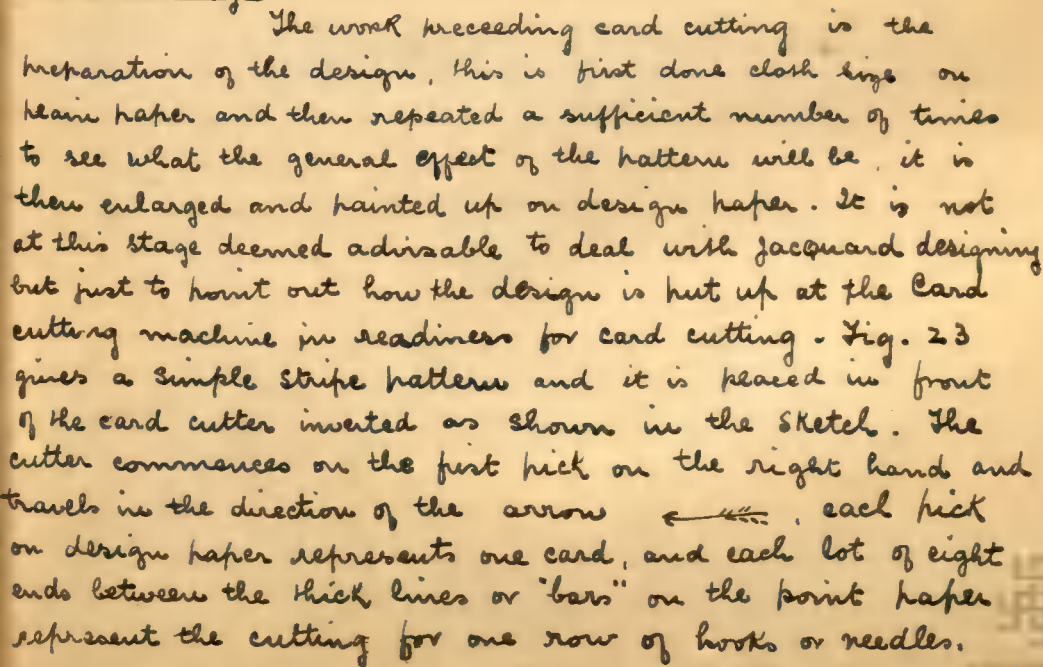 The work preceeding card cutting is the
preparation of the design, this is first done cloth size on
plain paper and then repeated a sufficient number of times
to see what the general effect of the pattern will be, it is
then enlarged and painted up on design paper. It is not
at this stage deemed advisable to deal with Jacquard designing
but just to point out how the design is put up at the Card
cutting machine in readiness for card cutting. Fig. 23
gives a simple stripe pattern and it is placed in front
of the card cutter inverted as shown in the Sketch. The
cutter commences on the first pick on the right hand and
travels in the direction of the arrow ←, each pick
on design paper represents one card, and each lot of eight
ends between the thick lines or "bars" on the point paper
represent the cutting for one row of hooks or needles.